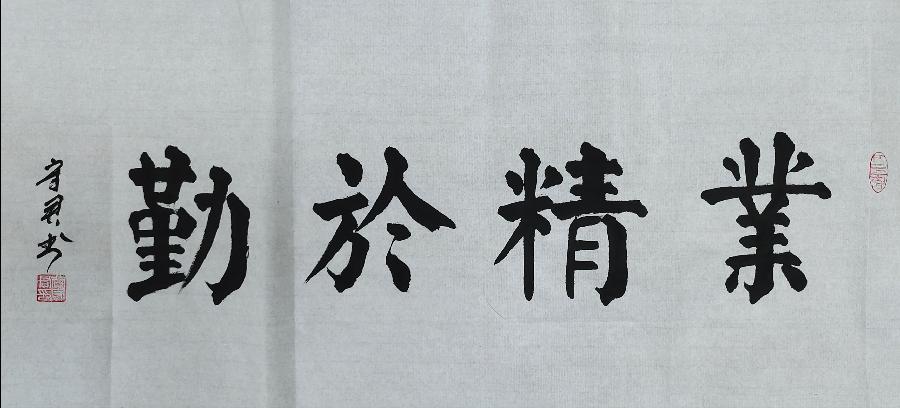 業精於勤
守君书